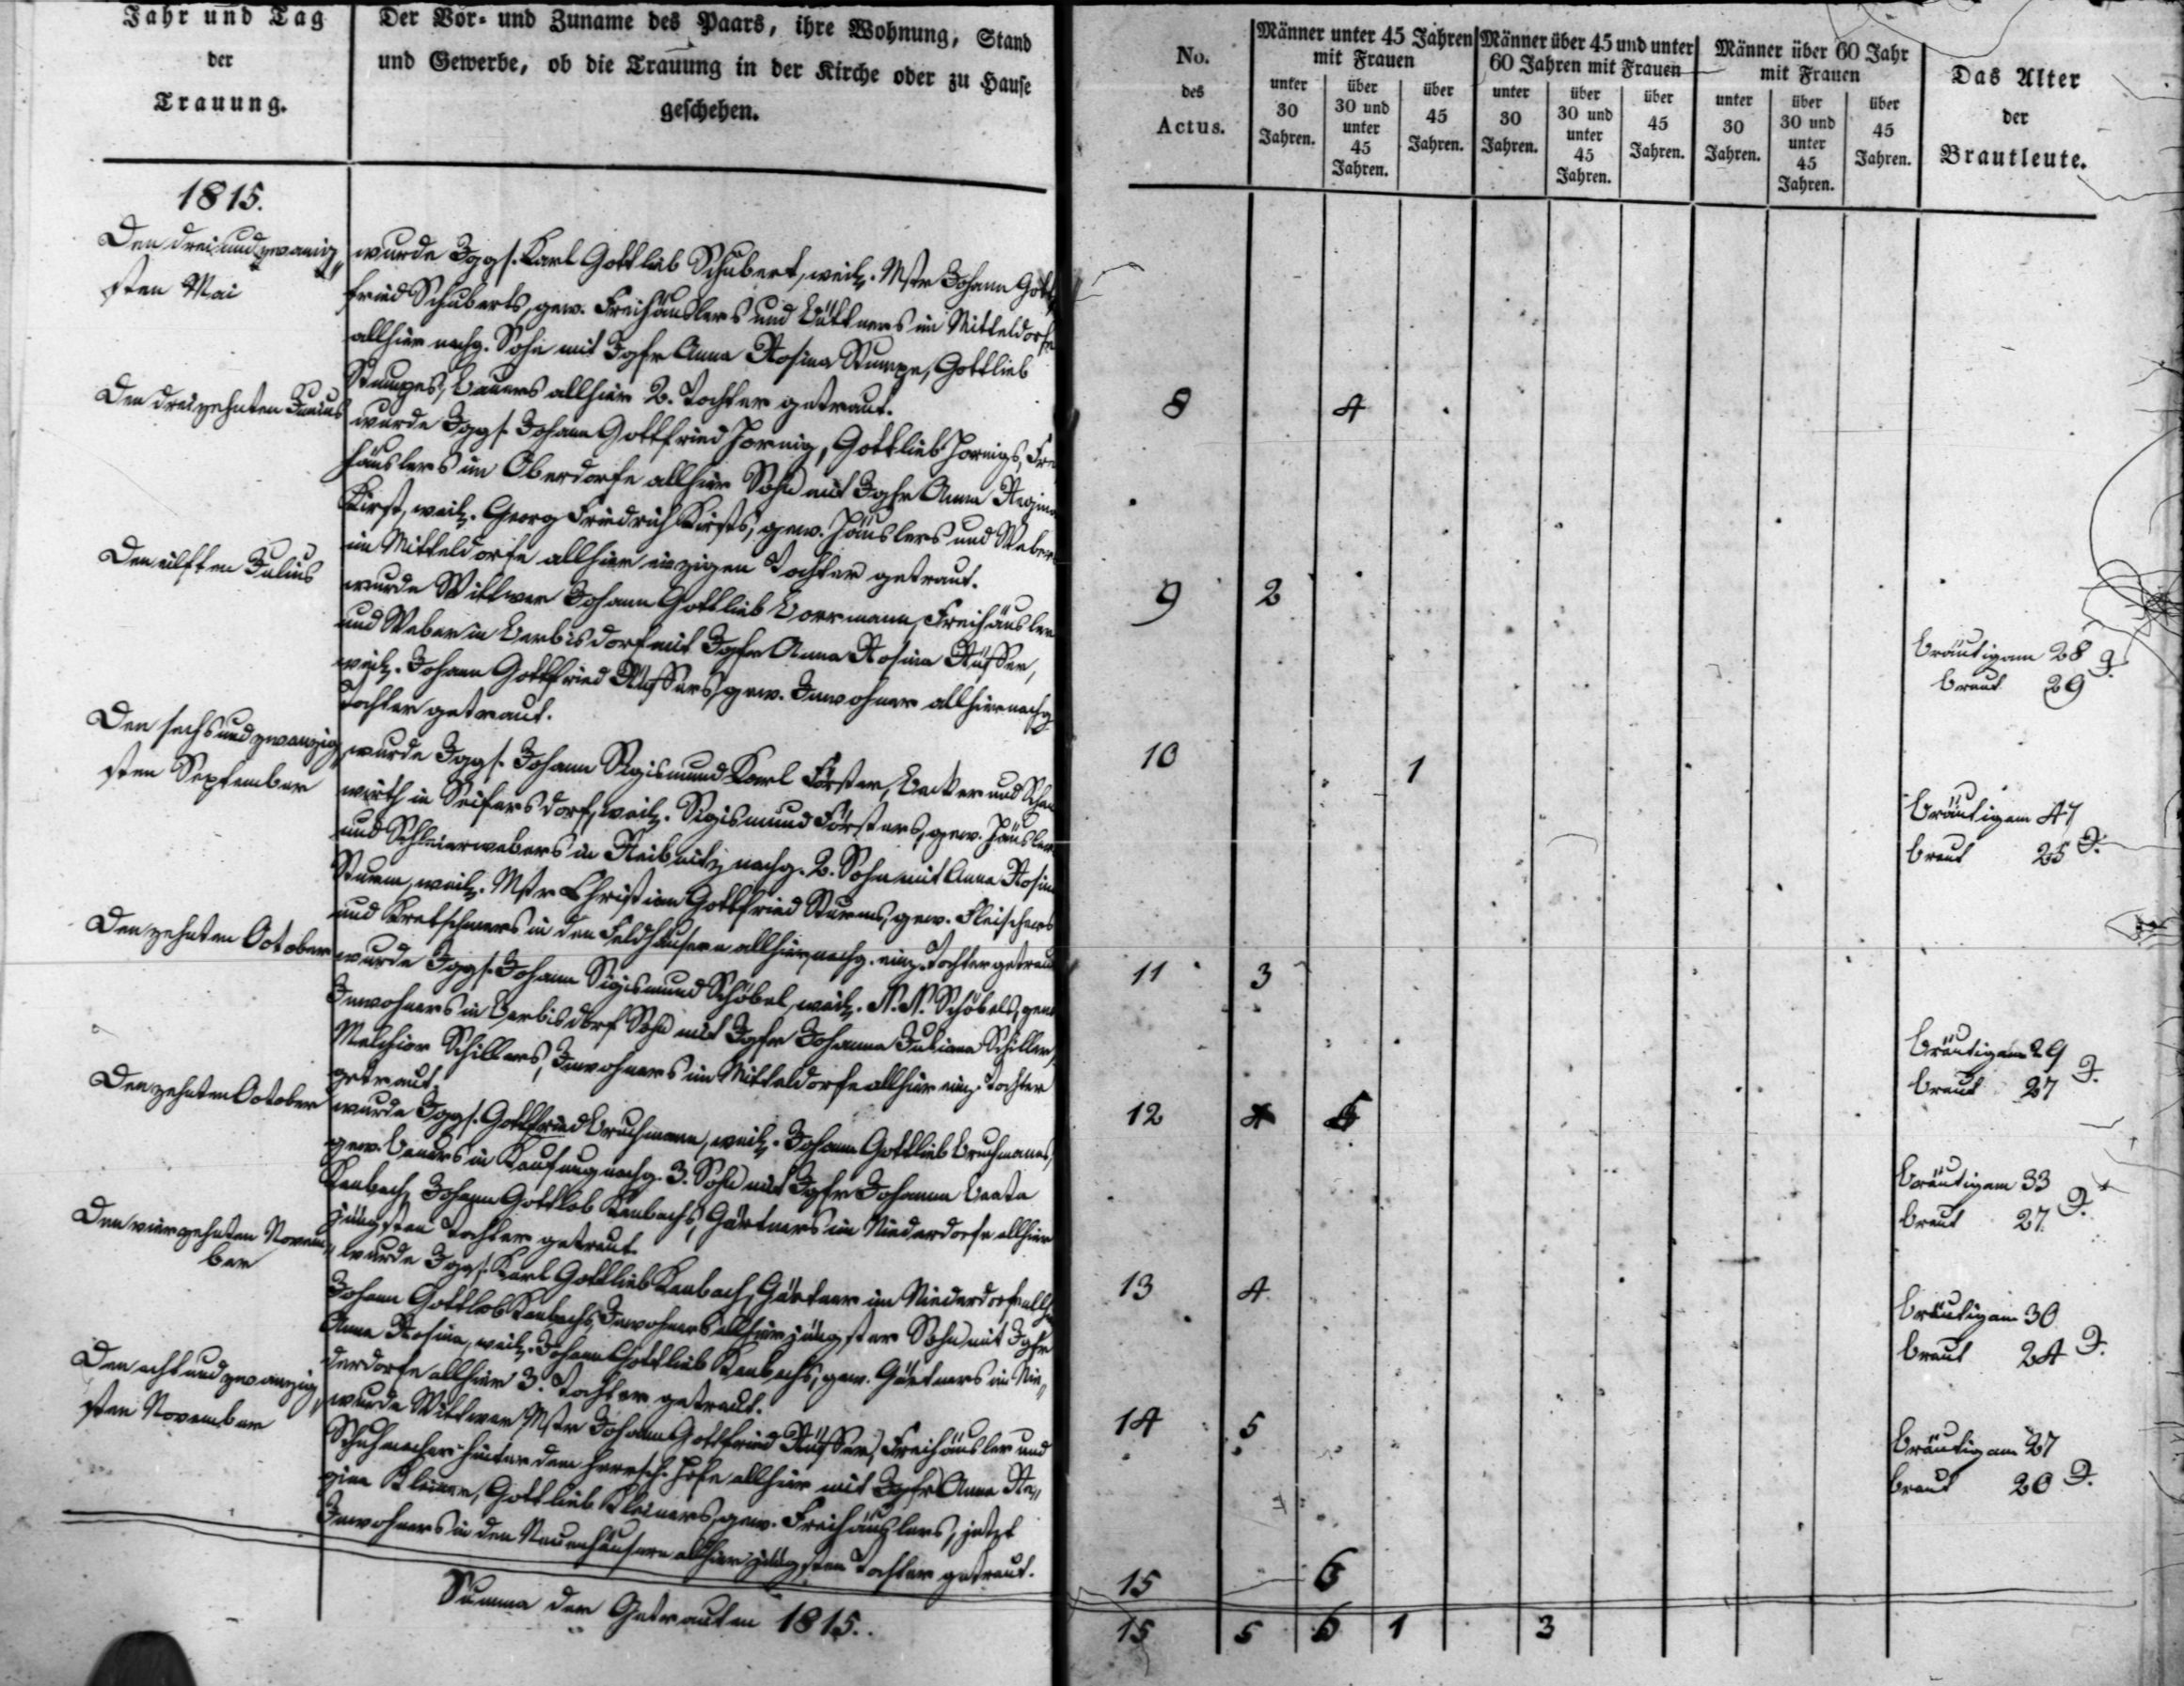 Jahr und Tag
der
Trauung.
Der Vor- und Zuname des Paars, ihre Wohnung, Stand
und Gewerbe, ob die Trauung in der Kirche oder zu Hause
geschehen.
1815.
Den drei und zwanzig„
sten Mai
wurde Jggs. Karl Gottlieb Schubert, weil. Mstr Johann Gott„
fried Schuberts, gew. Freihäuslers und Büttners im Mitteldorfe
allhier nachg. Sohn mit Jgfr Anna Rosina Stumpe, Gottlieb
Stumpes, Bauers allhier 2. Tochter getraut.
Den dreizehnten Junius
wurde Jggs. Johann Gottfried Hornig, Gottlieb Hornigs, Frei
häuslers im Oberdorfe allhier Sohn mit Jgfr Anna Regina
Kirst, weil. Georg Friedrich Kirsts, gew. Häuslers und Weber
im Mitteldorfe allhier einzigen Tochter getraut.
Den eilften Julius
wurde Wittwer Johann Gottlieb Boermann, Freihäusler
und Weber in Berbisdorf mit Jgfr Anna Rosina Rüffer,
weil. Johann Gottfried Rüffers, gew. Inwohner allhier nachg
Tochter getraut.
Den sechs und zwanzig„
sten September
wurde Jggs. Johann Sigismund Karl Förster, Becker und
wirth in Seifersdorf, weil. Sigismund Försters, gew. Häusler
und Schleierwebers in Reibnitz nachg. 2. Sohn mit Anna Rosina
Sturm, weil. Mstr Christian Gottfried Sturms, gew. Fleischers
und Kretschmers in den Feldhäusern allhier nachg. einz. Tochter getraut
Den zehnten October
wurde Jggs. Johann Sigismund Schöbel, weil. N. N. Schöbels, gew
Inwohners in Berbisdorf Sohn mit Jgfr Johanna Juliana Schiller,
Melchior Schillers, Inwohners im Mitteldorfe allhier einz. Tochter
getraut.
Den zehnten October
wurde Jggs. Gottfried Bruchmann, weil. Johann Gottlieb Bruchmanns,
gew. Bauers in Kauffung nachg. 3. Sohn mit Jgfr Johanna Beata
Kambach, Johann Gottlob Kambachs, Gärtners im Niederdorfe allhier
jüngsten Tochter getraut.
Den vierzehnten Novem„
ber
wurde Jggs. Karl Gottlieb Kambach, Gärtner im Niederdorfe allh
Johann Gottlob Kambachs, Inwohners allhier jüngster Sohn mit Jgfr
Anna Rosina, weil. Johann Gottlieb Kambachs, gew. Gärtners im Nie„
derdorfe allhier 3. Tochter getraut.
Den acht und zwanzig„
sten November
wurde Wittwer Mstr Johann Gottfried Rüffer, Freihäusler und
Schuhmacher hinter dem herrsch. Hofe allhier mit Jgfr Anna Re„
gina Kleiner, Gottlieb Kleiners, gew. Freihäuslers, jetzt
Inwohners in den Neuenhäusern allhier jüngsten Tochter getraut.
Summa der Getrauten 1815.
No.
des
Actus.
Männer unter 45 Jahren
mit Frauen
unter
30
Jahren.
über
30 und
unter
45
Jahren.
über
45
Jahren.
Männer über 45 und unter
60 Jahren mit Frauen
unter
30
Jahren.
über
30 und
unter
45
Jahren.
über
45
Jahren.
Männer über 60 Jahr
mit Frauen
unter
30
Jahren.
über
30 und
unter
45
Jahren.
über
45
Jahren.
Das Alter
der
Brautleute.
8 4
9 2
Bräutigam 28
Braut 29 J.
10 1
Bräutigam 47
Braut 25 J.
11 3
Bräutigam 29
Braut 27 J.
12
Bräutigam 33
Braut 27 J.
13 4
Bräutigam 30
Braut 24 J.
14 5
Bräutigam 27
Braut 20 J.
15 6
15 5 6 1 3